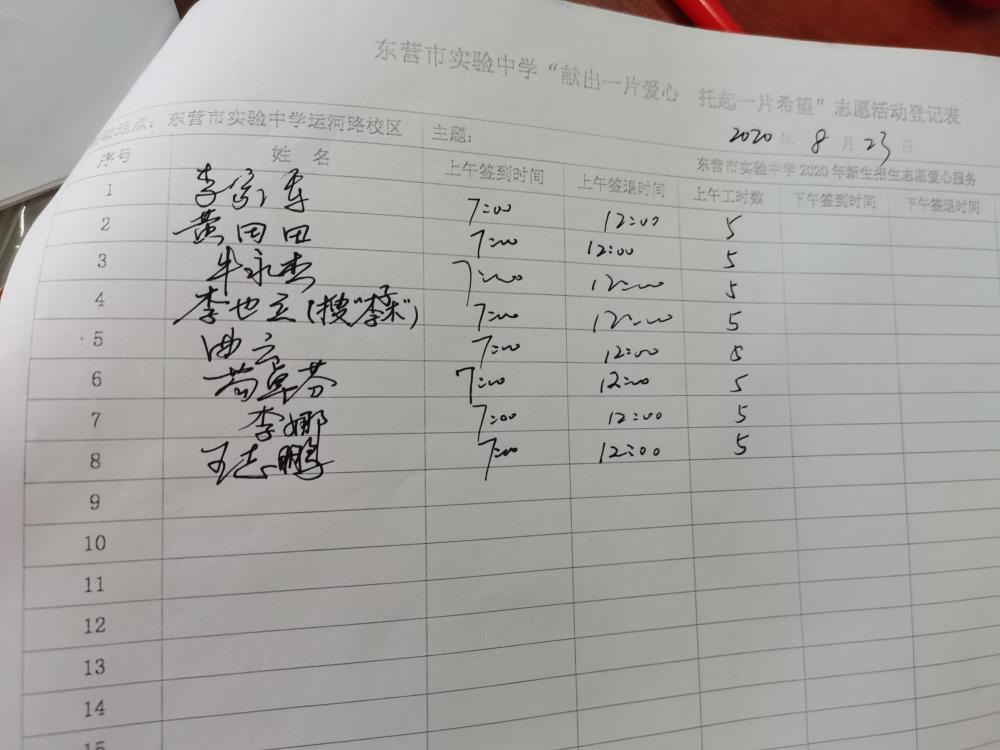 东营市实验中学“献出一片爱心 托起一片希望”志愿活动登记表
2020年 8月23日
地点：东营市实验中学运河路校区 主题： 东营市实验中学2020年新生招生志愿爱心服务
序号 姓名 上午签到时间 上午签退时间 上午工时数 下午签到时间 下午签退时间
1 李 7:00 12:00 5
2 黄田田 7:00 12:00 5
3 牛永杰 7:00 12:00 5
4 李也立(搜“李子木”) 7:00 12:00 5
5 曲云 7:00 12:00 5
6 苟卓芬 7:00 12:00 5
7 李娜 7:00 12:00 5
8 王志鹏 7:00 12:00 5
9
10
11
12
13
14
15